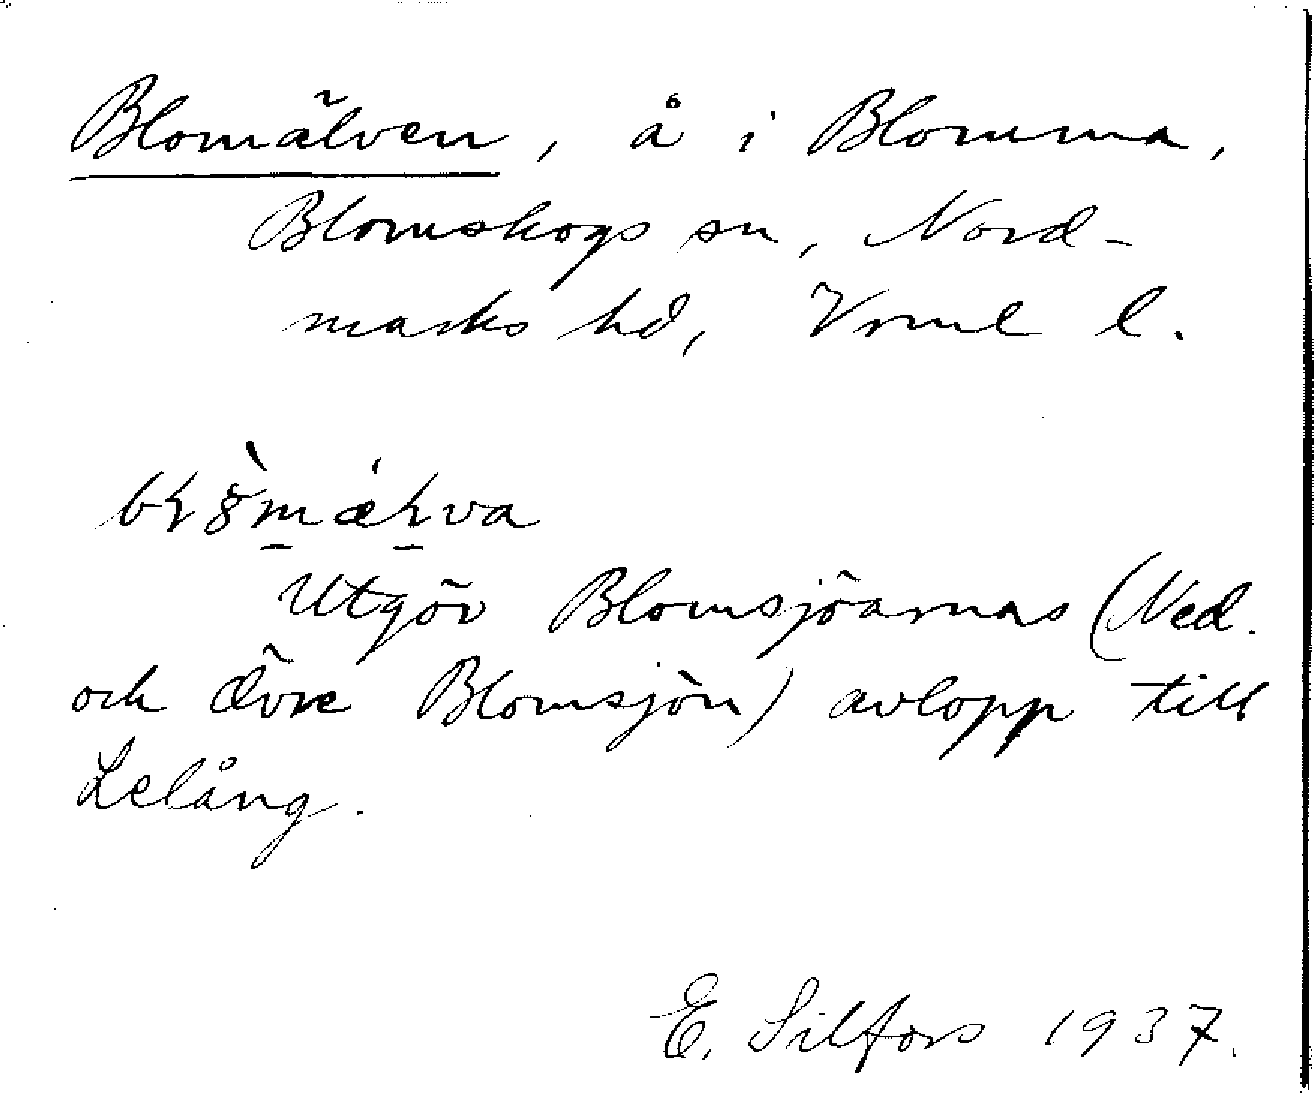 Blomälven, å i Blomma,
Blomskogs sn, Nord-
marks hd, Vrml l.
Utgör Blomsjöarnas (Ned.
och Övre Blomsjön) avlopp till
Lelång.
E. Silfors 1937.